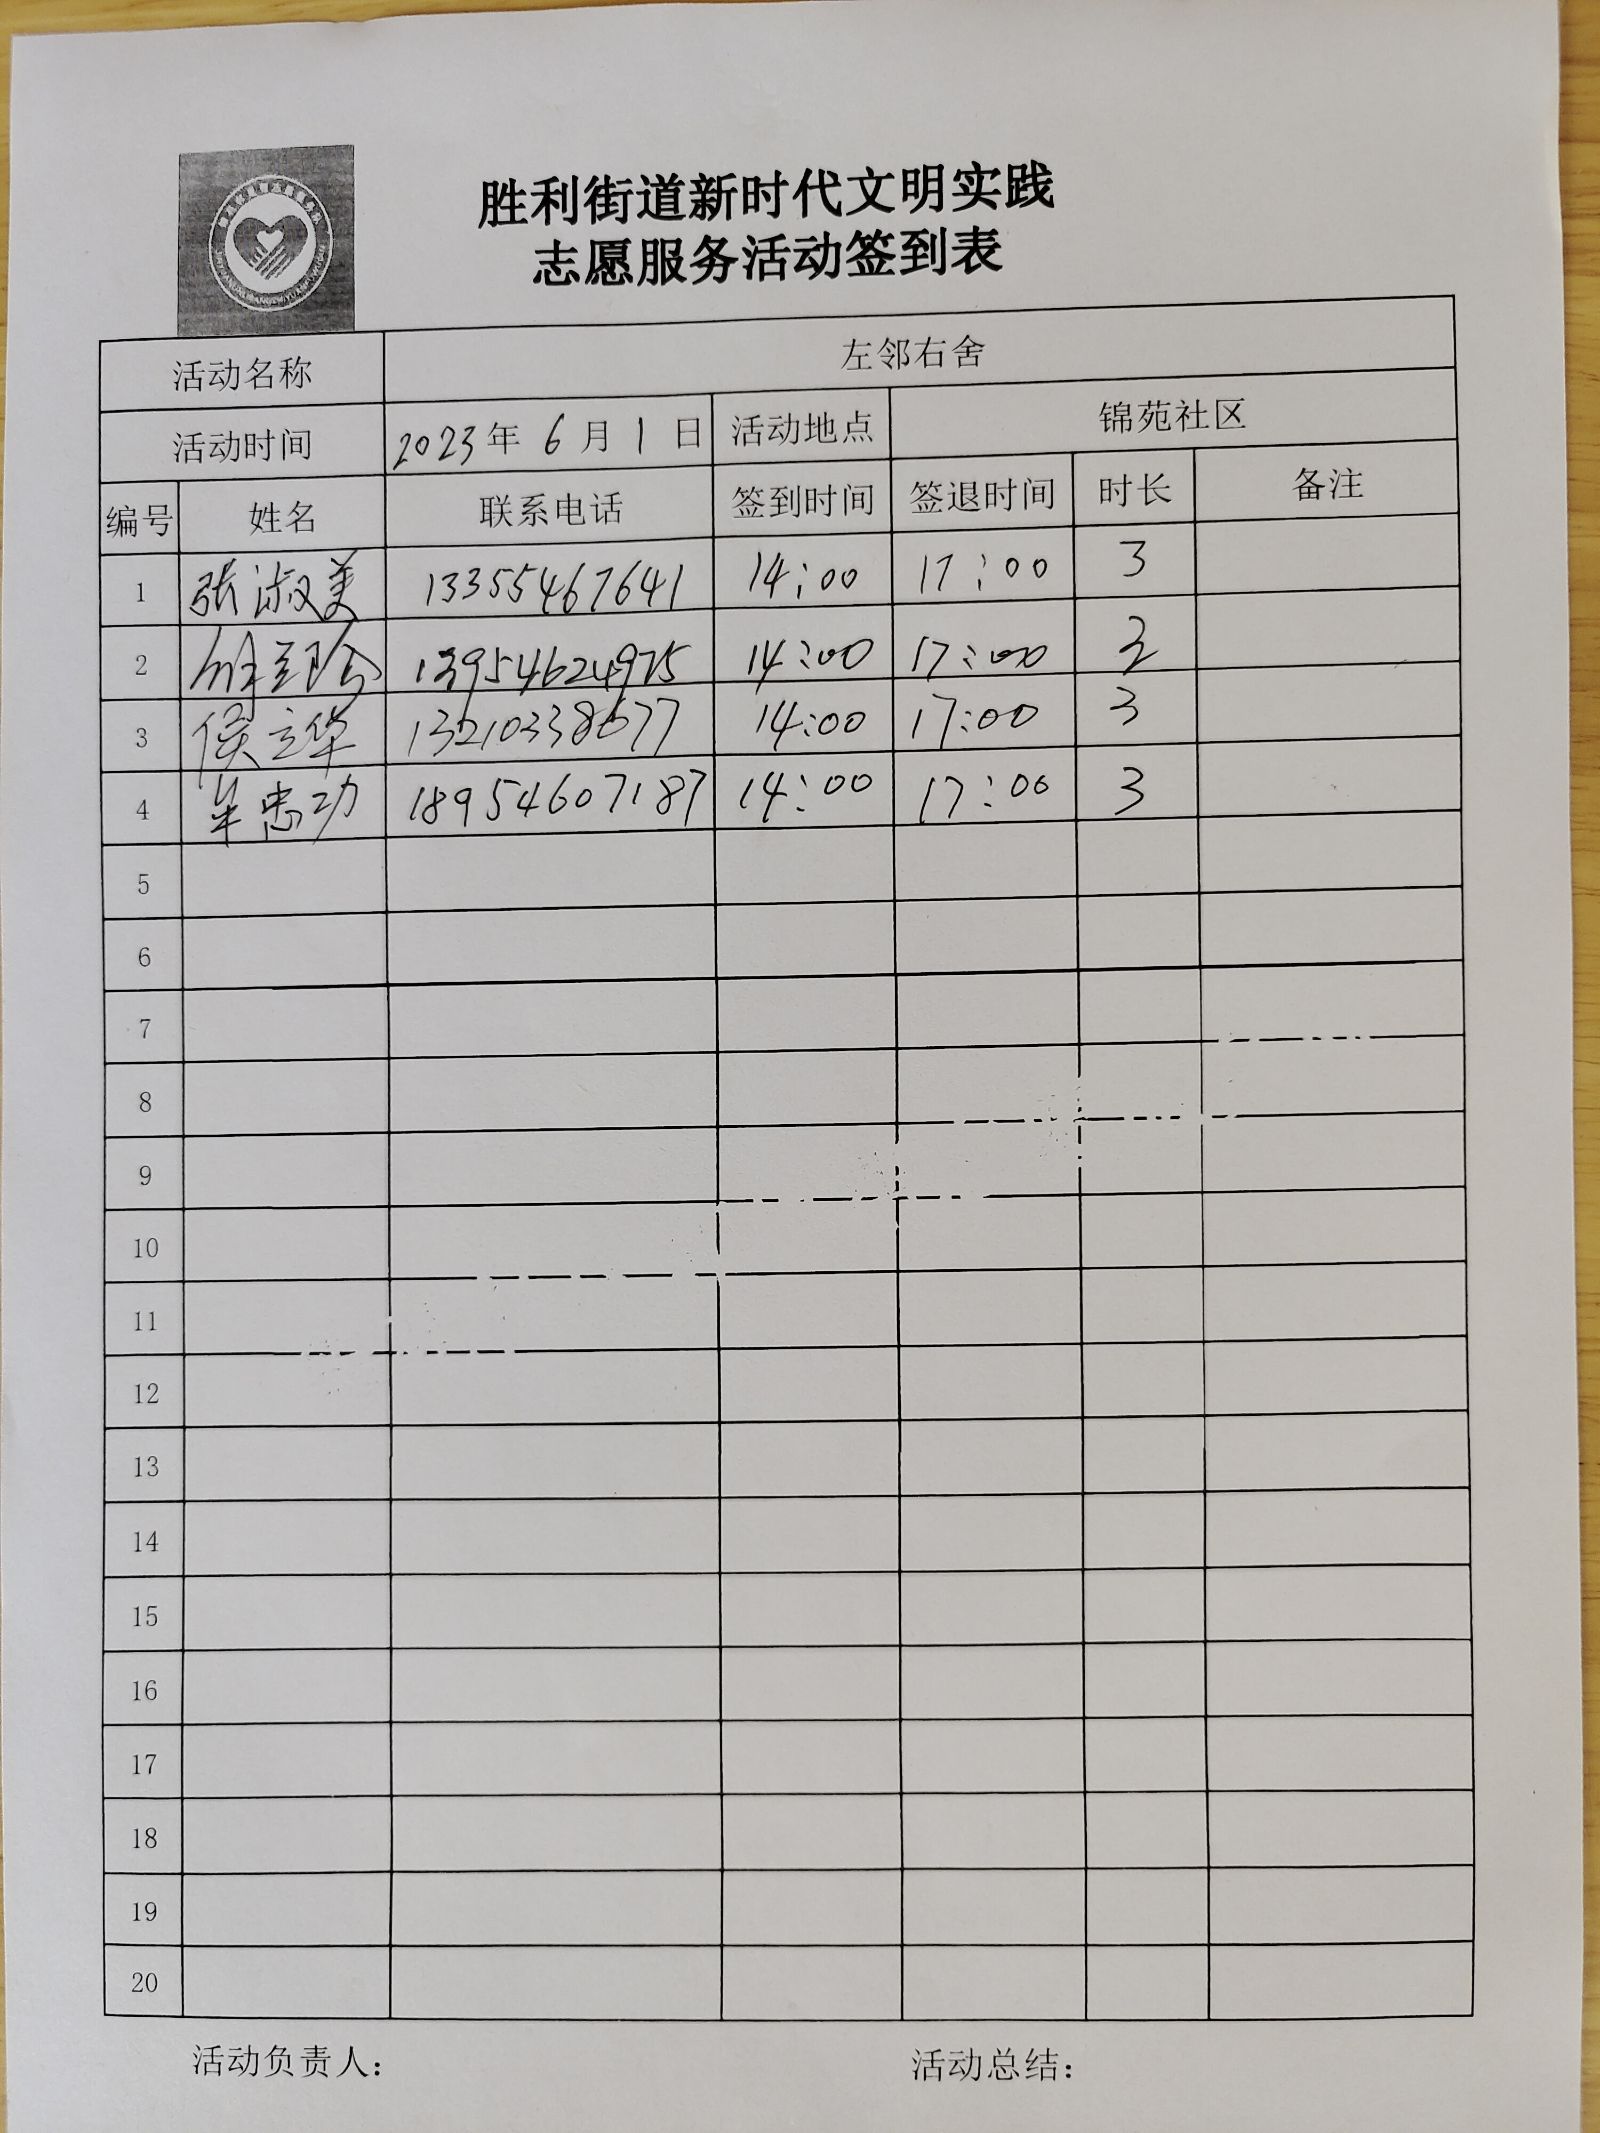 胜利街道新时代文明实践
志愿服务活动签到表
活动名称 左邻右舍
活动时间 2023年 6月 1日 活动地点 锦苑社区
编号 姓名 联系电话 签到时间 签退时间 时长 备注
1 张淑美 13355467641 14:00 17:00 3
2 13954624975 14:00 17:00 3
3 侯立华 13210338677 14:00 17:00 3
4 牟忠功 18954607187 14:00 17:00 3
5
6
7
8
9
10
11
12
13
14
15
16
17
18
19
20
活动负责人: 活动总结: